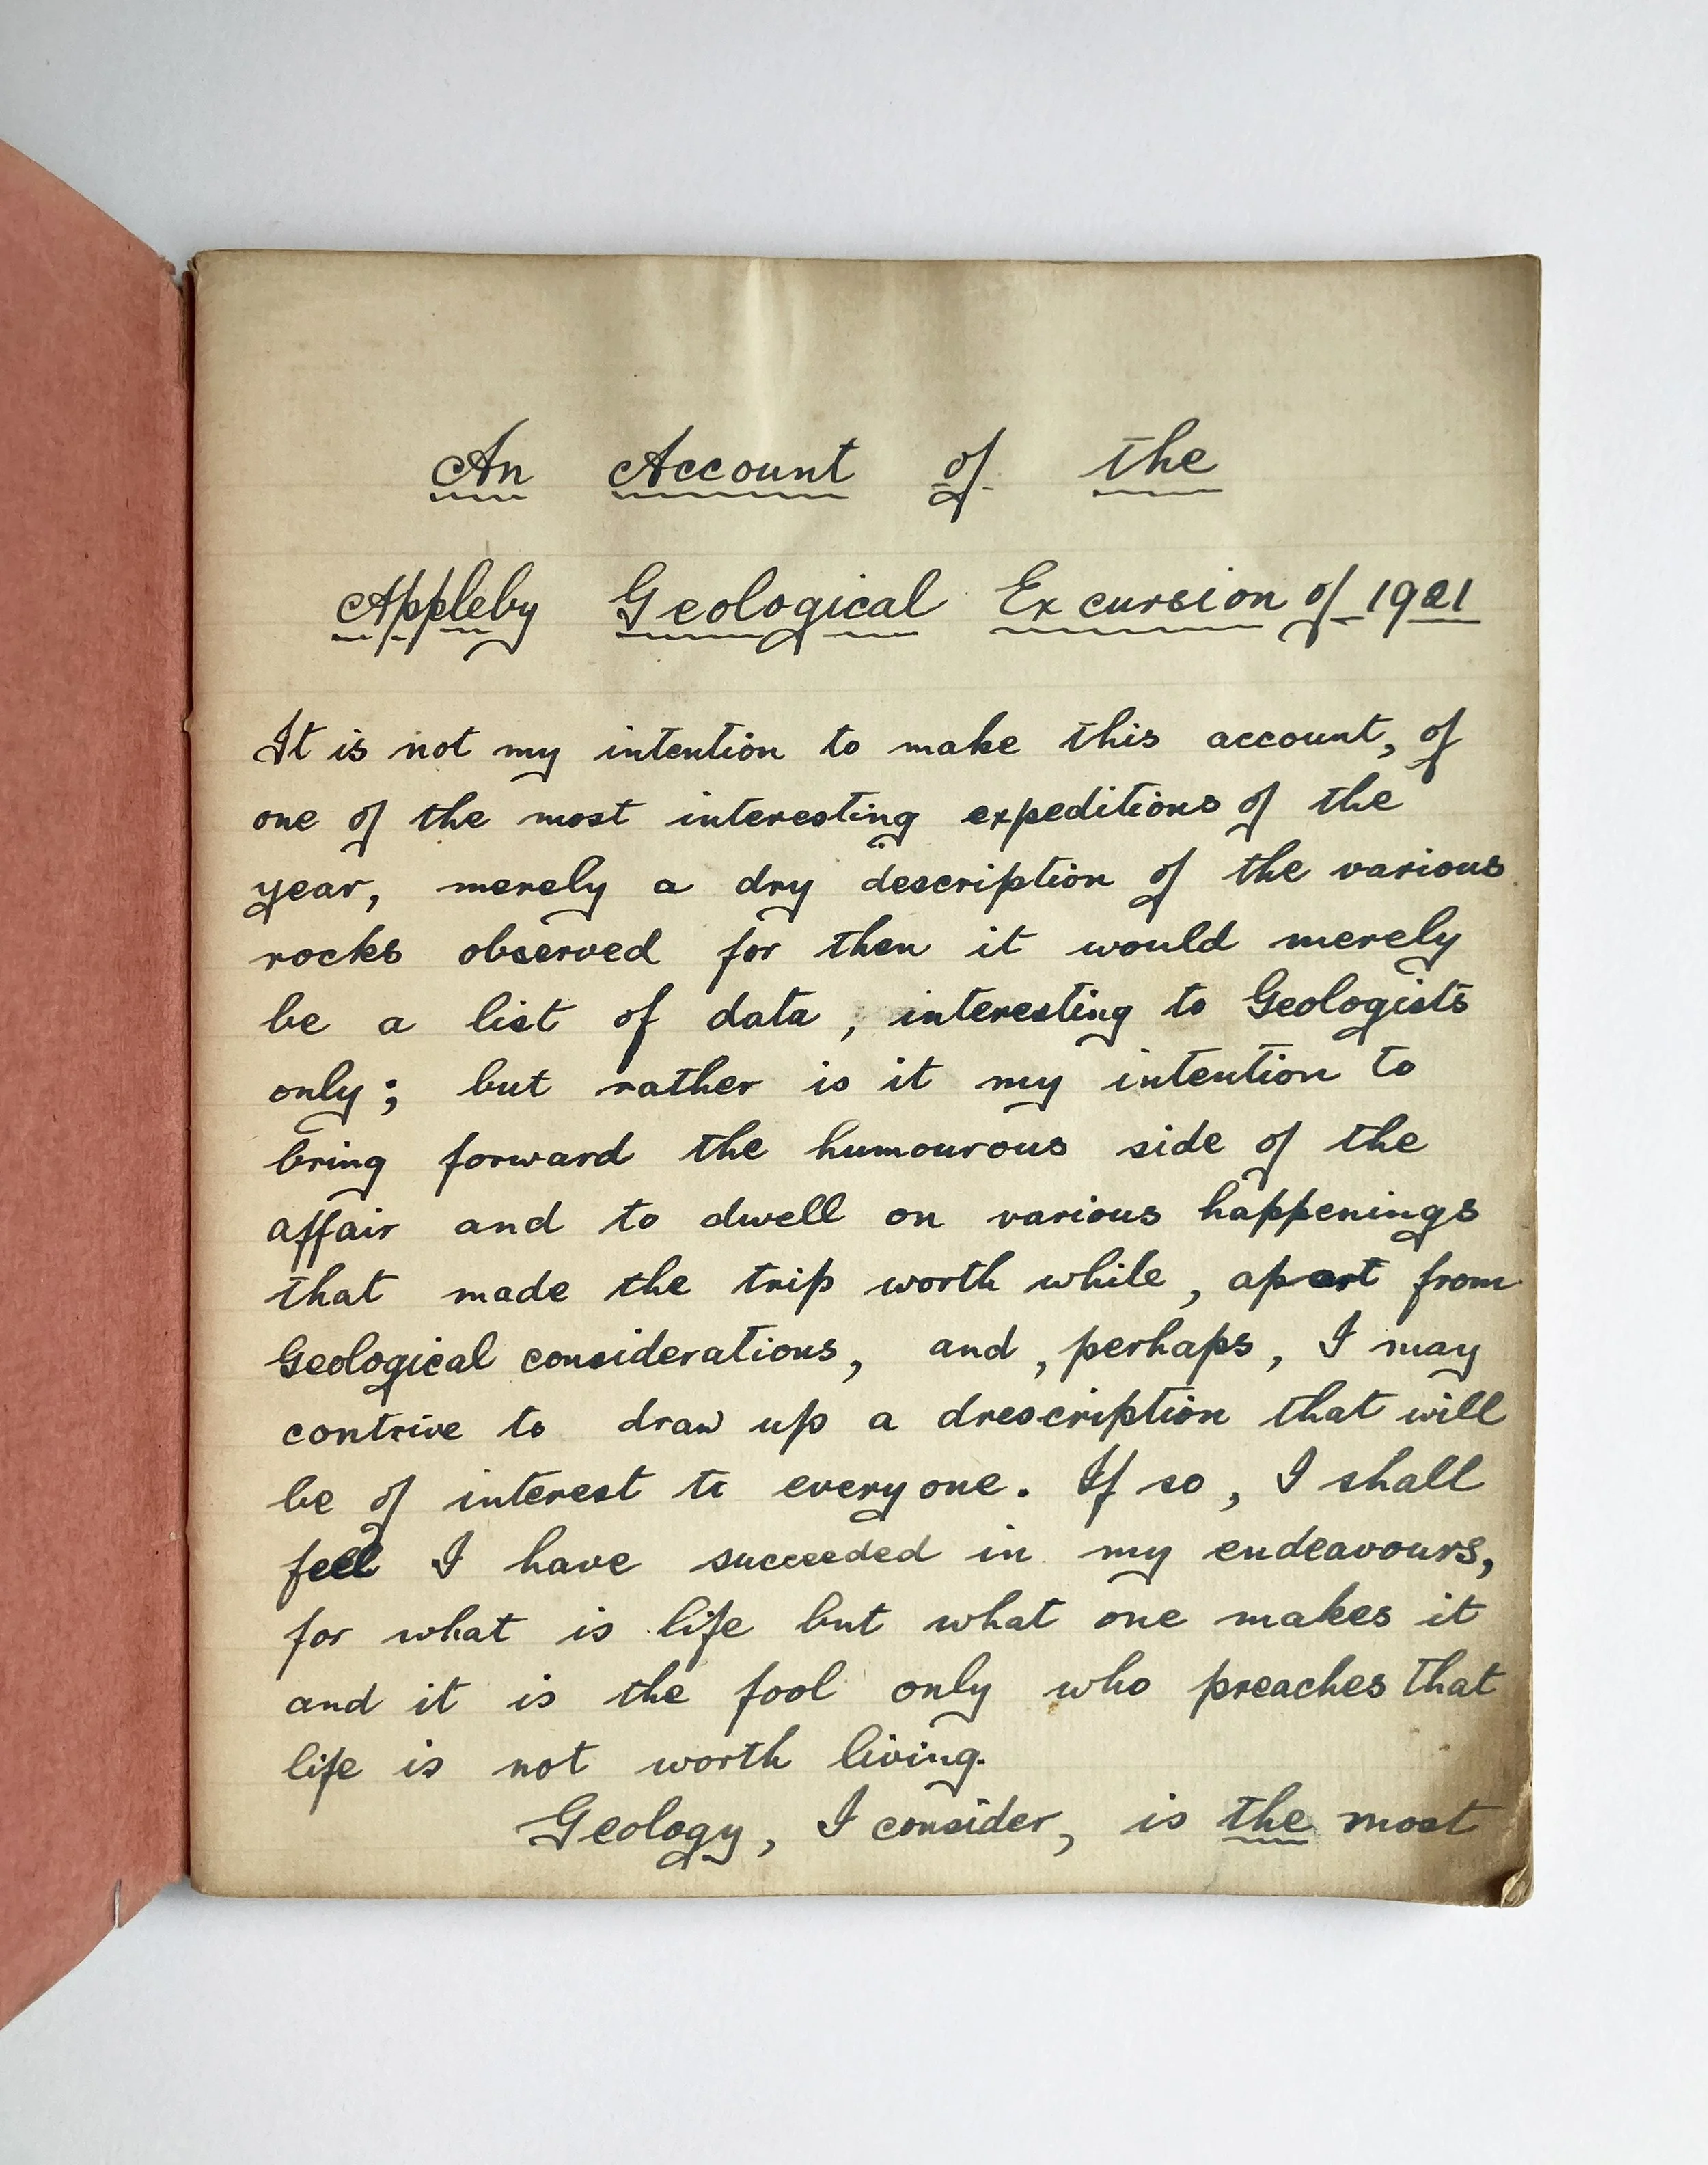 An Account of the
Appleby Geological Excursion of 1921
It is not my intention to make this account, of
one of the most interesting expeditions of the
year, merely a dry description of the various
rocks observed for then it would merely
be a list of data, interesting to Geologists
only; but rather is it my intention to
bring forward the humourous side of the
affair and to dwell on various happenings
that made the trip worth while, apart from
Geological considerations, and, perhaps, I may
contrive to draw up a drescription that will
be of interest to everyone. If so, I shall
feel I have succeeded in my endeavours,
for what is life but what one makes it
and it is the fool only who preaches that
life is not worth living.
Geology, I consider, is the most